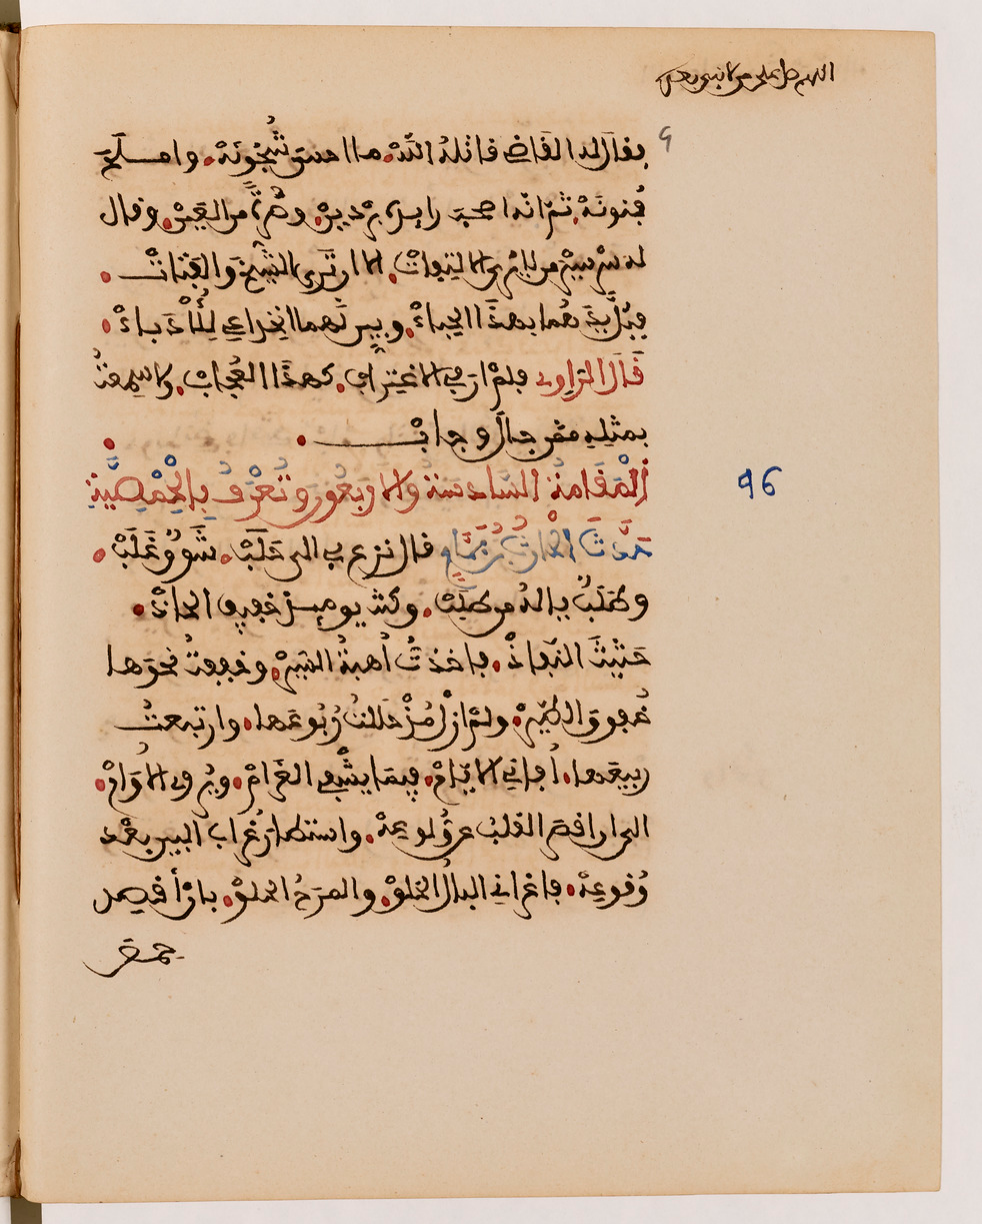 اللهم صل على من لا نبي بعده
فقال له القاضي قاتلك الله ما احسن شجونه. واملح
فنونه. ثم انه اصحب رايده بردين. وصرة من العين. وقال
له سر سير من لا يرى الالتفات. الا ان ترى الشيخ والفتات.
فبل يديهما بهذا الحباء. وبين لهما انخداعي للأدباء.
قال الراوي فلم ار في الاغتراب. كهذا العجاب. ولا سمعت
بمثله ممن جال وجاب.
المقامة السادسة والاربعون وتعرف بالحمصية
96
حدث الحارث بن همام قال نزع بي الى حلب. شوق غلب.
وطلب ياله من طلب. وكنت يومئذ خفيف الحاذ.
حثيث النفاذ. فاخذت أهبة السير. وخففت نحوها
خفوق الطير. ولم ازل مذ حللت ربوعها. وارتبعت
ربيعها. أفاني الايام. فيما يشفي الغرام. ويروي الاوام.
الى ان اقصر القلب عن ولوعه. واستطار غراب البين بعد
وقوعه. فاغراني البال الخلو. والمرح الحلو. بان أقصد
حمص